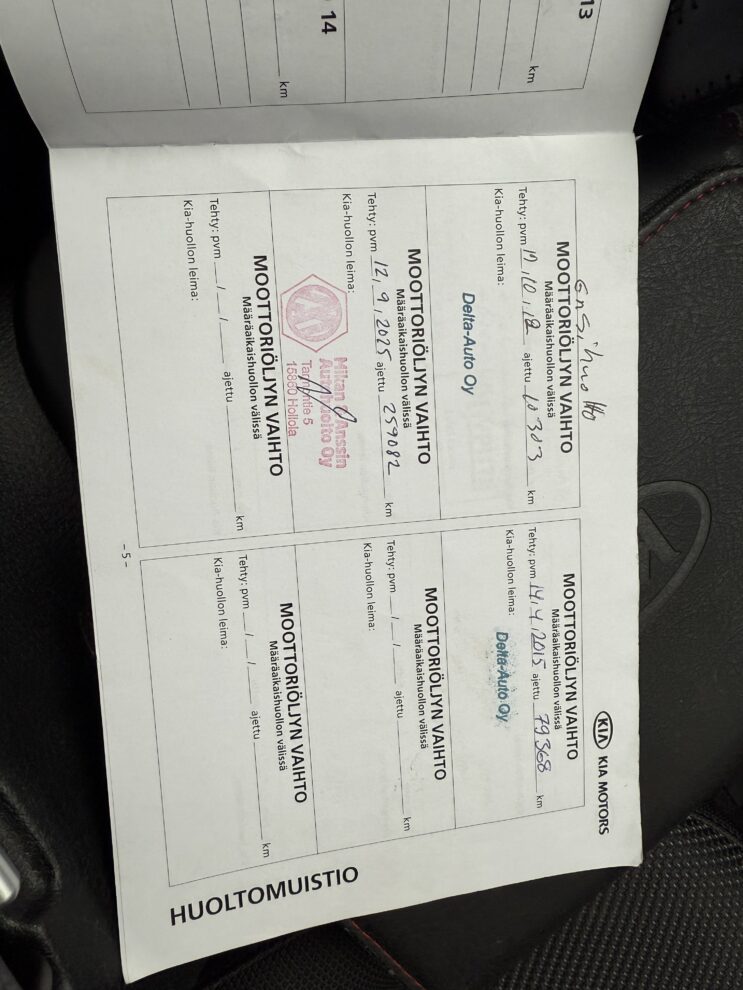 13
km
14
km
KIA KIA MOTORS
HUOLTOMUISTIO
Ensihuolto
MOOTTORIÖLJYN VAIHTO
Määräaikaishuollon välissä
Tehty: pvm 17,10,12 ajettu 10303 km
Kia-huollon leima:
Delta-Auto Oy
MOOTTORIÖLJYN VAIHTO
Määräaikaishuollon välissä
Tehty: pvm 14,4,2015 ajettu 79368 km
Kia-huollon leima:
Delta-Auto Oy
MOOTTORIÖLJYN VAIHTO
Määräaikaishuollon välissä
Tehty: pvm 12,9,2025 ajettu 259082 km
Kia-huollon leima:
Mikan & Anssin
Autohuolto Oy
5
15860 Hollola
MOOTTORIÖLJYN VAIHTO
Määräaikaishuollon välissä
Tehty: pvm / / ajettu km
Kia-huollon leima:
MOOTTORIÖLJYN VAIHTO
Määräaikaishuollon välissä
Tehty: pvm / / ajettu km
Kia-huollon leima:
MOOTTORIÖLJYN VAIHTO
Määräaikaishuollon välissä
Tehty: pvm / / ajettu km
Kia-huollon leima:
- 5 -